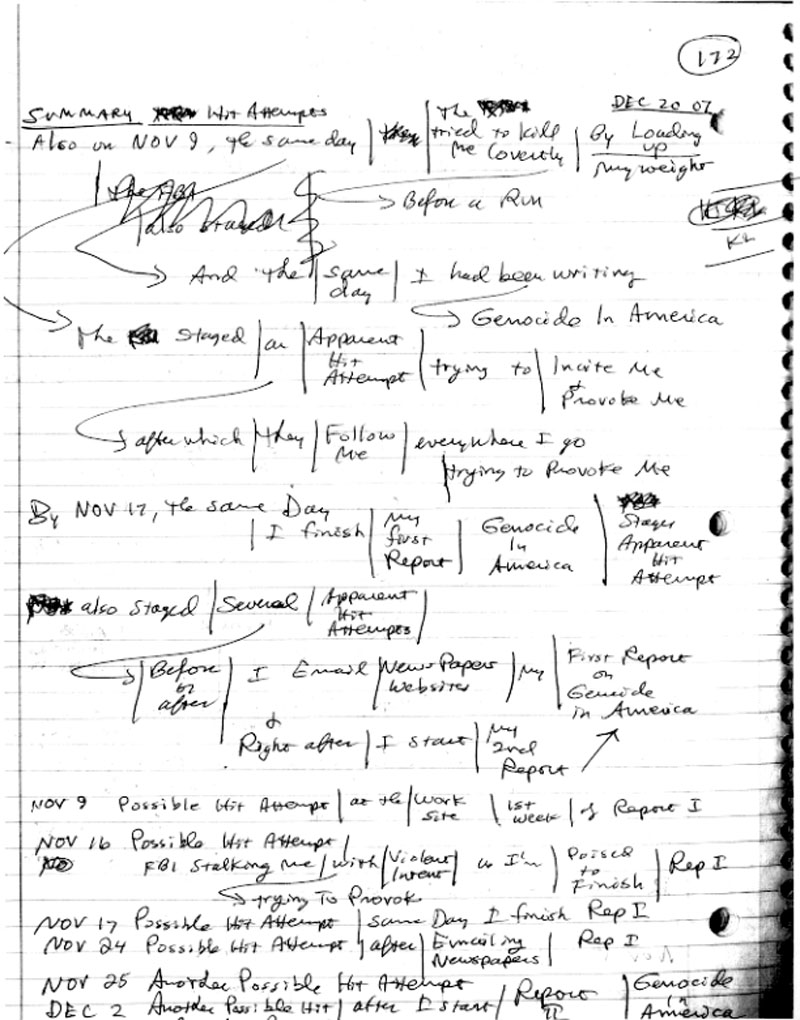 172
SUMMARY Hit Attempts
DEC 20 07
Also on NOV 9, the same day | they | The tried to kill Me Covertly | By Loading up my weight
| The FBI
also staged
→ Before a Run
→ And the | same day | I had been writing
→ Genocide In America
→ The Staged | an | Apparent Hit Attempt | trying to | Incite Me & Provoke Me
→ after which | they | Follow Me | everywhere I go
| trying to Provoke Me
By NOV 17, the same Day
| I finish | My first Report | Genocide In America | Stages Apparent Hit Attempt
also staged | Several | Apparent Hit Attempts |
→ | Before or after | I Email | NewsPapers Websites | My | First Report on Genocide in America
& Right after | I start | My 2nd Report
NOV 9 Possible Hit Attempt | at the | Work Site | 1st week | of Report I
NOV 16 Possible Hit Attempt |
FBI Stalking Me | with | Violent Intent | as I'm | Poised to Finish | Rep I
→ trying To Provok
NOV 17 Possible Hit Attempt | same Day I finish Rep I
NOV 24 Possible Hit Attempt | after | Emailing Newspapers | Rep I
NOV 25 Another Possible Hit Attempt
DEC 2 Another Possible Hit | after I start | Report II | Genocide in America